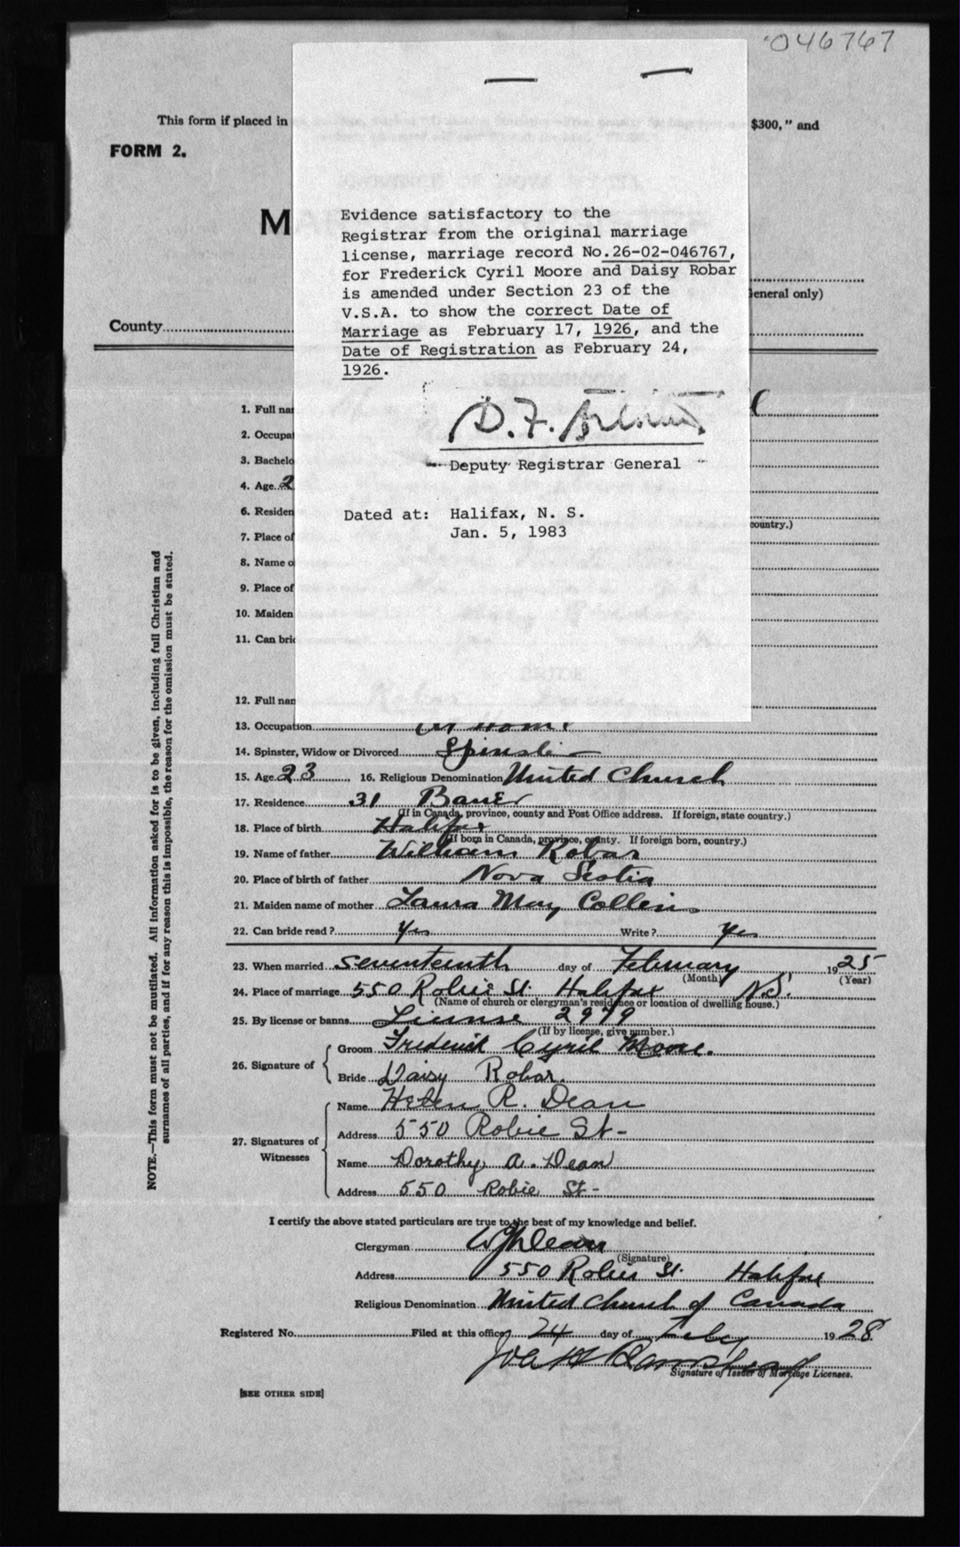 046767
This form if placed in
$300," and
FORM 2.
M
Evidence satisfactory to the
Registrar from the original marriage
license, marriage record No.26-02-046767,
for Frederick Cyril Moore and Daisy Robar
is amended under Section 23 of the
V.S.A. to show the correct Date of
Marriage as February 17, 1926, and the
Date of Registration as February 24,
1926.
eneral only)
County
D.F.
Deputy Registrar General
Dated at: Halifax, N. S.
Jan. 5, 1983
1. Full nam
2. Occupat
3. Bachelo
4. Age. 2
6. Residen
country.)
7. Place of
8. Name o
9. Place of
10. Maiden
11. Can brid
BRIDE
12. Full nam
Robar
13. Occupation At Home
14. Spinster, Widow or Divorced Spinster
15. Age 23 16. Religious Denomination United Church
17. Residence 31 Bauer
(If in Canada, province, county and Post Office address. If foreign, state country.)
18. Place of birth Halifax
(If born in Canada, province, county. If foreign born, country.)
19. Name of father William Robar
20. Place of birth of father Nova Scotia
21. Maiden name of mother Laura May Collins
22. Can bride read? Yes Write? Yes
23. When married seventeenth day of February 1925
(Month) (Year)
24. Place of marriage 550 Robie St Halifax N.S.
(Name of church or clergyman's residence or location of dwelling house.)
25. By license or banns License 2979
(If by license, give number.)
26. Signature of
Groom Frederick Cyril Moore.
Bride Daisy Robar.
27. Signatures of Witnesses
Name Helen R. Dean
Address 550 Robie St-
Name Dorothy A. Dean
Address 550 Robie St-
I certify the above stated particulars are true to the best of my knowledge and belief.
Clergyman Dean
(Signature)
Address 550 Robie St. Halifax
Religious Denomination United Church of Canada
Registered No. Filed at this office 24 day of Feby 1928
Signature of Issuer of Marriage Licenses.
[SEE OTHER SIDE]
NOTE.—This form must not be mutilated. All information asked for is to be given, including full Christian and
surnames of all parties, and if for any reason this is impossible, the reason for the omission must be stated.